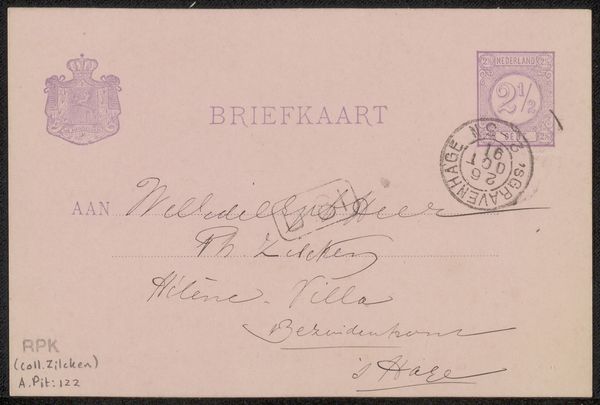 NEDERLAND
2½
CENT
BRIEFKAART
'SGRAVENHAGE
26
OCT
91
AAN Weledelgeb Heer
Ph. Zilcken
Hélène - Villa
Bezuidenhout
's Hage
RPK
(coll. Zilcken)
A. Pit: 122